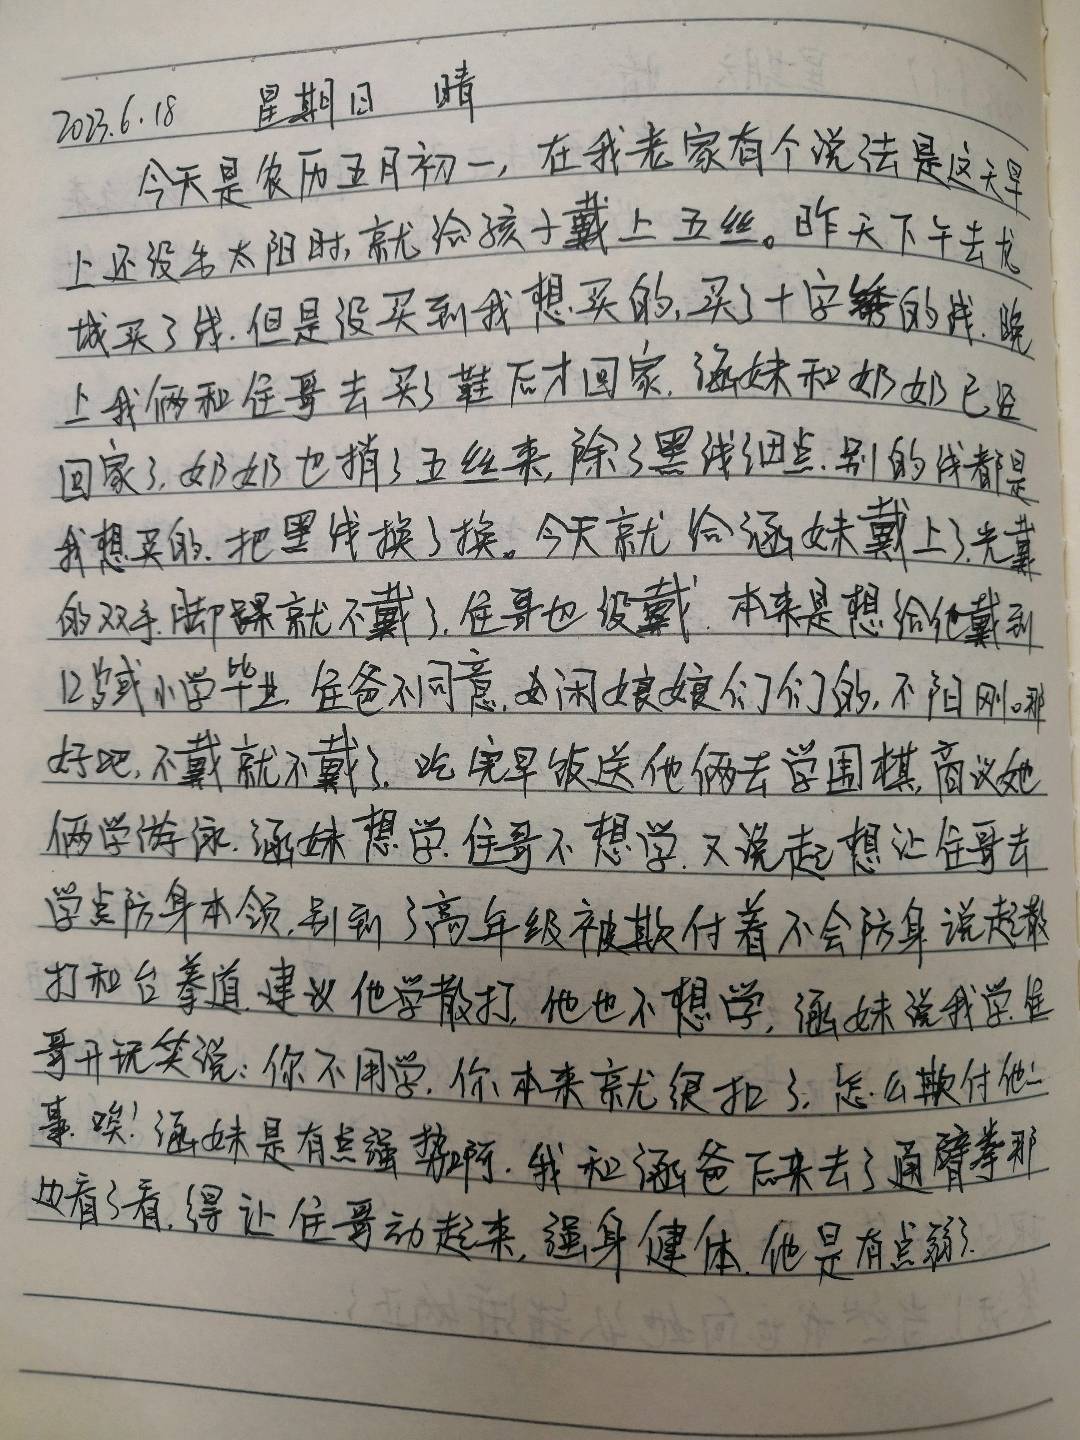 2023.6.18 星期日 晴
今天是农历五月初一，在我老家有个说法是这天早
上还没出太阳时，就给孩子戴上五丝。昨天下午去龙
城买了线.但是没买到我想买的，买了十字绣的线.晚
上我俩和住哥去买了鞋后才回家.涵妹和奶奶已经
回家了.奶奶也捎了五丝来，除了黑线细点.别的线都是
我想买的.把黑线换了换。今天就给涵妹戴上了.光戴
的双手.脚踝就不戴了.住哥也没戴.本来是想给他戴到
12岁或小学毕业.住爸不同意.娘娘们们的，不阳刚。那
好吧，不戴就不戴了.吃完早饭送他俩去学围棋，商议她
俩学游泳.涵妹想学.住哥不想学.又说起想让住哥去
学点防身本领，别到了高年级被欺付着不会防身.说起散
打和台拳道.建议他学散打，他也不想学，涵妹说我学.住
哥开玩笑说：你不用学.你本来就很扣了，怎么欺付他一
事.唉！涵妹是有点强势啊.我和涵爸后来去了通臂拳那
边看了看.得让住哥动起来，强身健体.他是有点弱了.